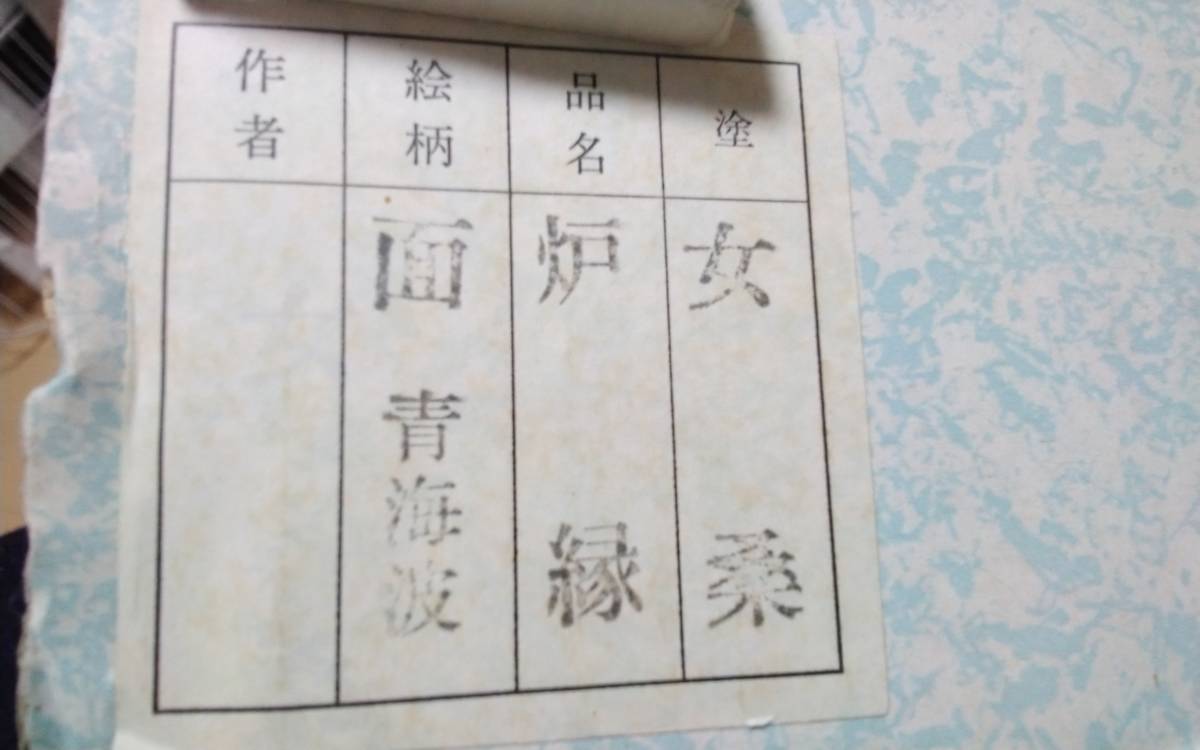 塗
女桑
品名
炉縁
絵柄
面 青海波
作者